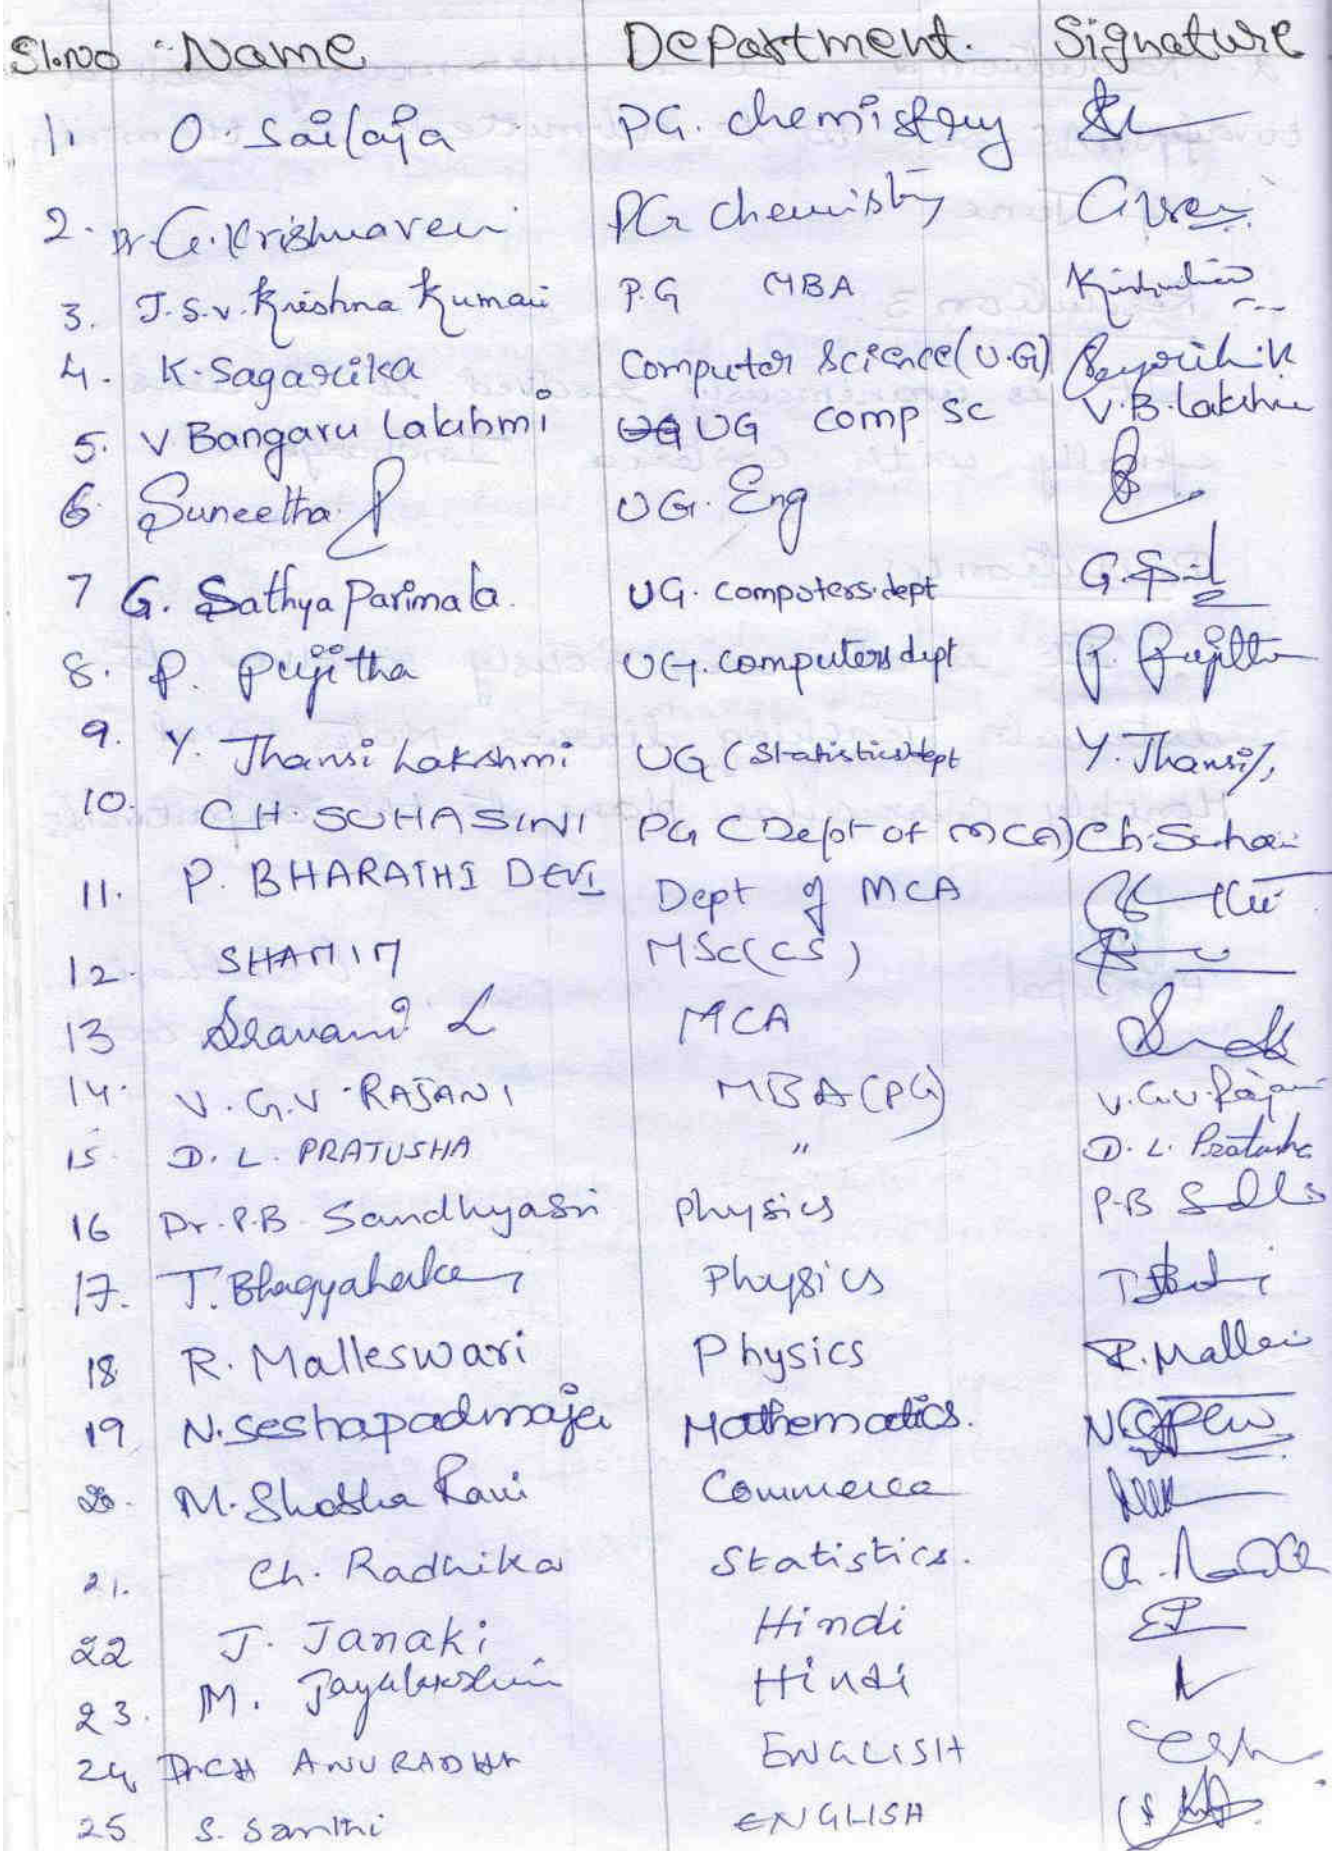 Sl.no Name Department. Signature
1. O. Sailaja PG. chemistry
2. Dr. G. Krishnaveni PG chemistry
3. J.S.V. Krishna Kumari P.G MBA
4. K. Sagarika Computer Science (U.G)
5. V Bangaru Lakshmi UG comp Sc V.B. Lakshmi
6. Suneetha P UG. Eng
7 G. Sathya Parimala. UG. computers.dept
8. P. Pujitha UG. computers dept P. Pujitha
9. Y. Jhansi Lakshmi UG (Statistics) dept Y. Jhansi
10. CH. SUHASINI PG (Dept of MCA) Ch. Suhasi
11. P. BHARATHI DEVI Dept of MCA
12. SHAMIM MSc(CS)
13 Sravani L MCA
14. V. G. V. RAJANI MBA (PG) V.G.V. Rajani
15. D. L. PRATUSHA " D. L. Pratusha
16 Dr. P.B. Sandhyasri Physics P.B
17. T. Physics
18 R. Malleswari Physics R. Malles
19 N. Seshapadmaja Mathematics.
20. M. Shobha Rani Commerce
21. Ch. Radhika Statistics.
22 J. Janaki Hindi
23. M. Jayalakshmi Hindi
24, Dr CH ANURADHA ENGLISH
25 S. Santhi ENGLISH